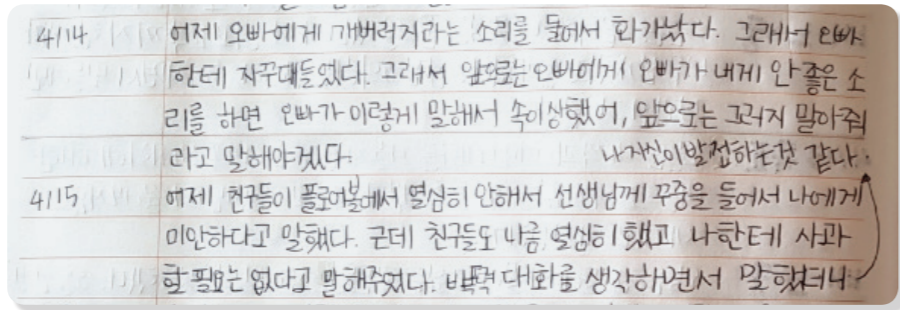 4/14 어제 오빠에게 개버러지라는 소리를 들어서 화가났다. 그래서 오빠
한테 자꾸대들었다. 그래서 앞으로는 오빠에게 오빠가 내게 안 좋은 소
리를 하면 오빠가 이렇게 말해서 속이상했어, 앞으로는 그러지 말아줘
라고 말해야겠다. 나자신이발전하는것 같다.
4/15 어제 친구들이 플로어볼에서 열심히 안해서 선생님께 꾸중을 들어서 나에게
미안하다고 말했다. 근데 친구들도 나름 열심히 했고 나한테 사과
할 필요는 없다고 말해주었다. 대화를 생각하면서 말했더니